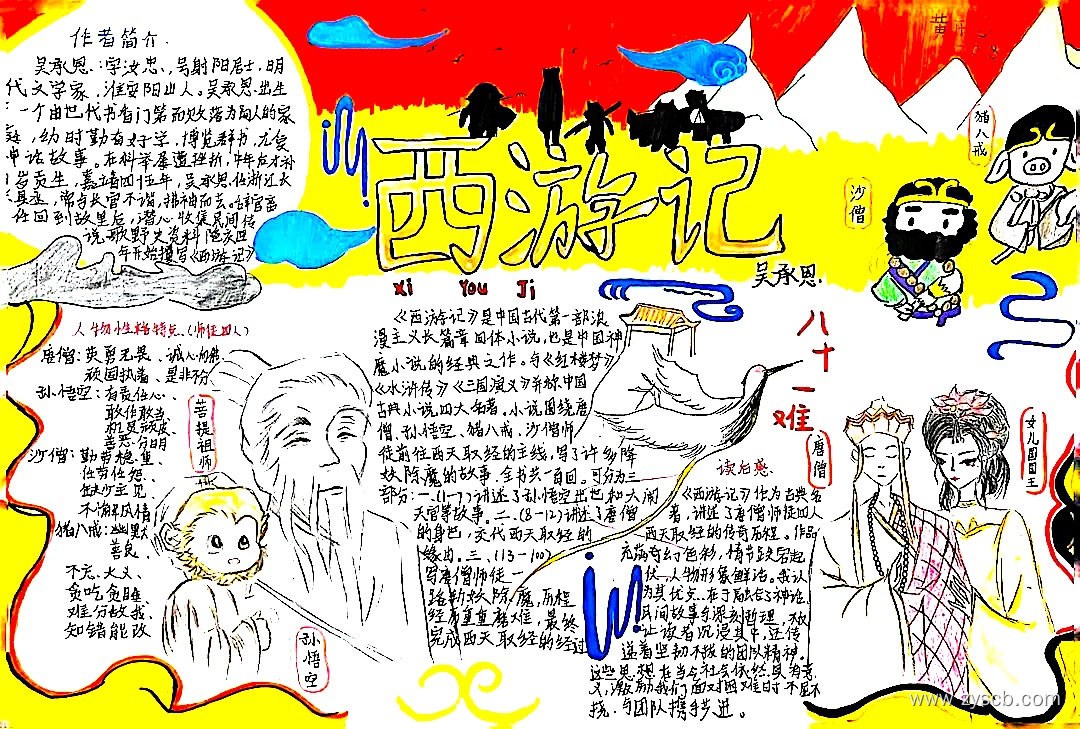 作者简介.
吴承恩:字汝忠,号射阳居士,明
代文学家,淮安阳山人。吴承恩出生
一个由世代书香门第而败落为商人的家
庭,幼时勤奋好学,博览群书,尤爱
神话故事。在科举屡遭挫折,中年后才补
岁贡生,嘉靖四十五年,吴承恩任浙江长
县丞,常与长官不谐,拂袖而去。辞官
任回到故里后,潜心收集民间传
说、歌野史资料
年开始撰写《西游记》
西游记
Xi You Ji
吴承恩.
黄
猪八戒
沙僧
人物性格特点.(师徒四人)
唐僧:英勇无畏、诚心向佛、
顽固执着、是非不分
孙悟空:有责任心、
敢作敢当
机灵顽皮
善恶分明
沙僧:勤劳稳重、
任劳任怨、
缺少主见
不懂风情
猪八戒:幽默
善良、
不忘大义、
贪吃贪睡
难分敌我、
知错能改
菩提祖师
孙悟空
《西游记》是中国古代第一部浪
漫主义长篇章回体小说,也是中国神
魔小说的经典之作。与《红楼梦》
《水浒传》《三国演义》并称中国
古典小说四大名著。小说围绕唐
僧、孙悟空、猪八戒、沙僧师
徒前往西天取经的主线,写了许多降
妖除魔的故事。全书共一百回。可分为三
部分:一、(1-7)讲述了孙悟空出世和大闹
天宫等故事。二、(8-12)讲述了唐僧
的身世,交代西天取经的
缘由。三、(13-100)
写唐僧师徒一
路斩妖除魔,历程
经重重磨难,最终
完成西天取经的经过
八十一难
唐僧
女儿国国王
读后感.
《西游记》作为古典名
著,讲述了唐僧师徒四人
西天取经的传奇历程。作品
充满奇幻色彩,情节跌宕起
伏,人物形象鲜活。我认
为其优点在于融合了神话、
民间故事与深刻哲理,
让读者沉浸其中,还传
递着坚韧不拔的团队精神。
这些思想在当今社会依然具有意
义,激励我们面对困难时不屈不
挠,与团队携手步进。
www.zyscb.com